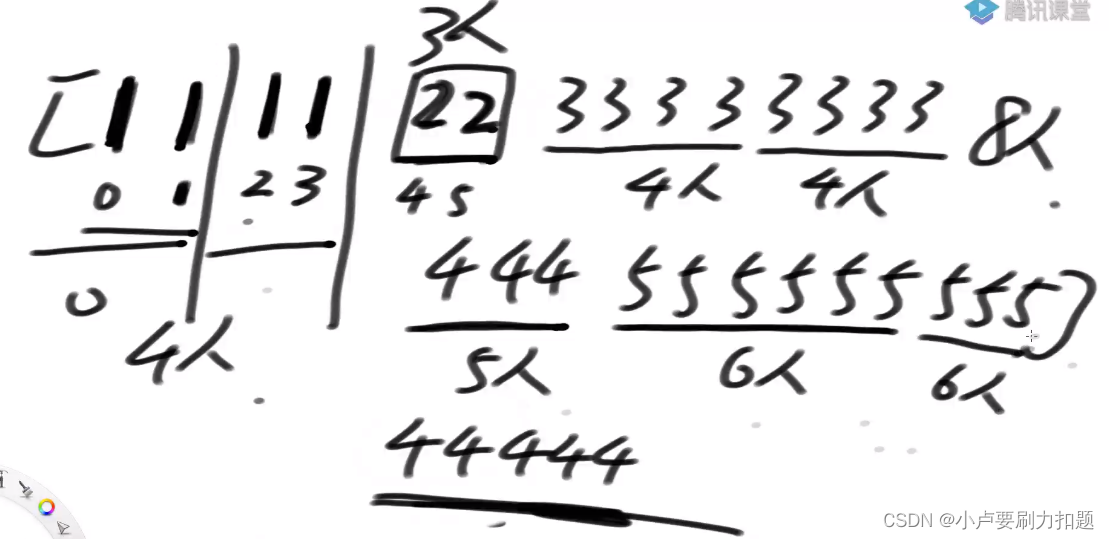 腾讯课堂
3人
[11 11 22 3333 3333 8人
0 1 2 3 4 5 4人 4人
444 555555 555]
0
4人 5人 6人 6人
44444
CSDN @小卢要刷力扣题